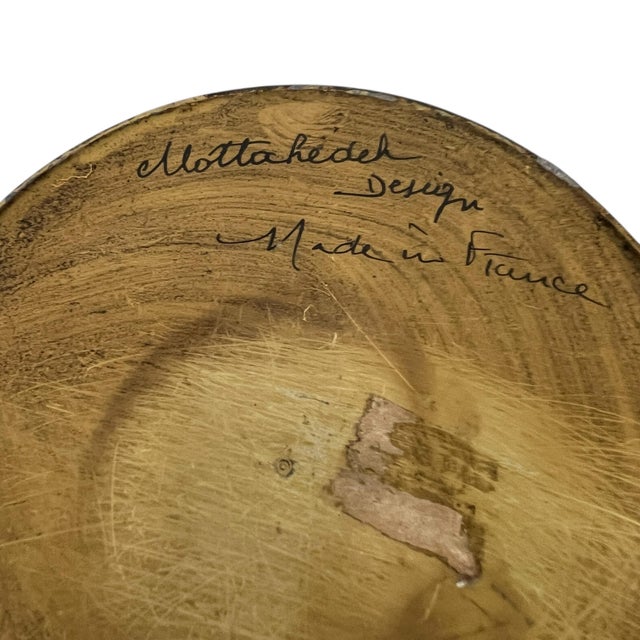 Mottahedeh
Design
Made in France